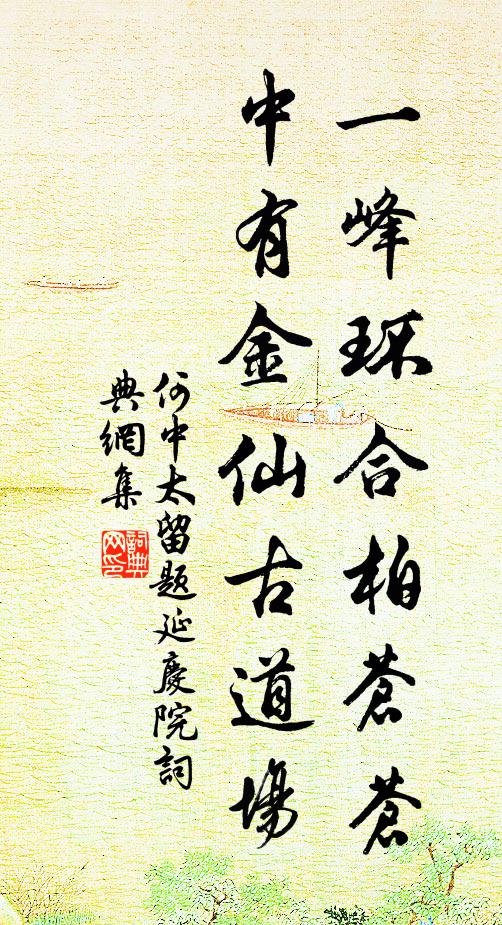 一峰环合柏苍苍
中有金仙古道場
何中太留題延慶院詞
典網集
詞典
网印